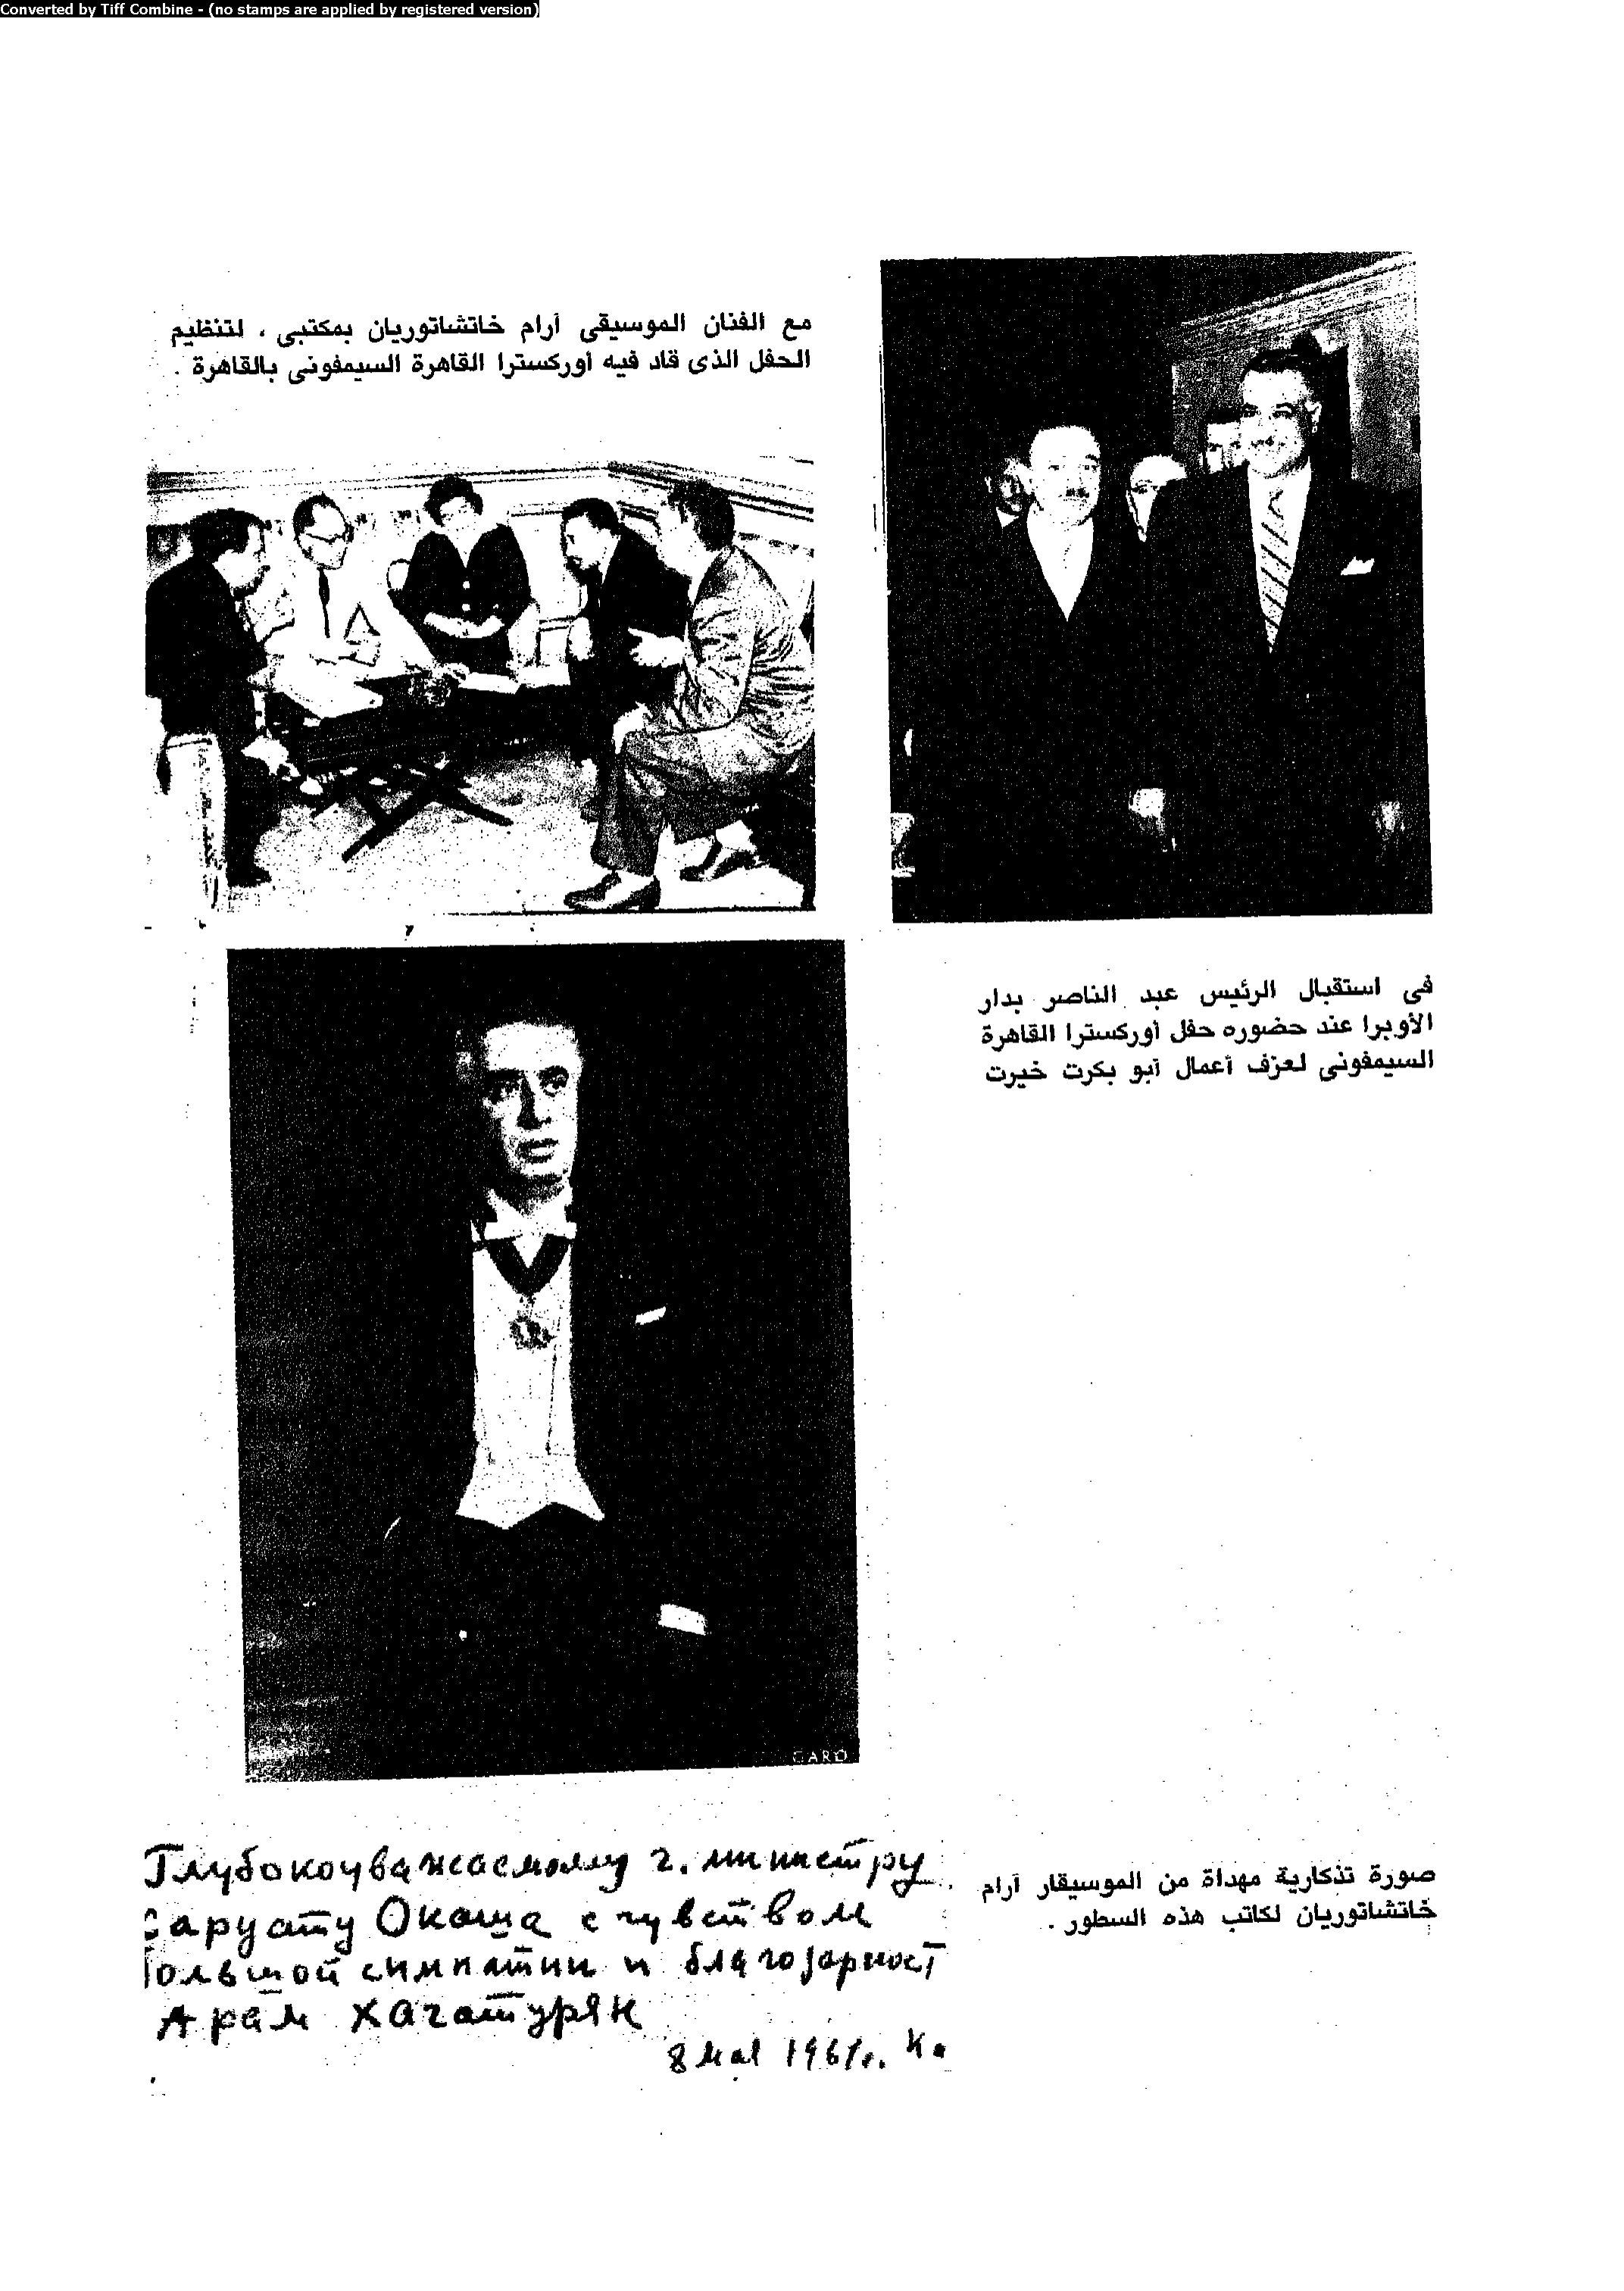 Converted by Tiff Combine - (no stamps are applied by registered version)
مع الفنان الموسيقى آرام خاتشاتوريان بمكتبى ، لتنظيم
الحفل الذى قاد فيه أوركسترا القاهرة السيمفونى بالقاهرة .
فى استقبال الرئيس عبد الناصر بدار
الأوبرا عند حضوره حفل أوركسترا القاهرة
السيمفونى لعزف أعمال أبو بكرت خيرت
CARO
Глубокоуважаемому г. министру
Саруату Окаша с чувством
большой симпатии и благодарност
Арам Хачатурян
8 мая 1961г. К.
صورة تذكارية مهداة من الموسيقار آرام
خاتشاتوريان لكاتب هذه السطور .